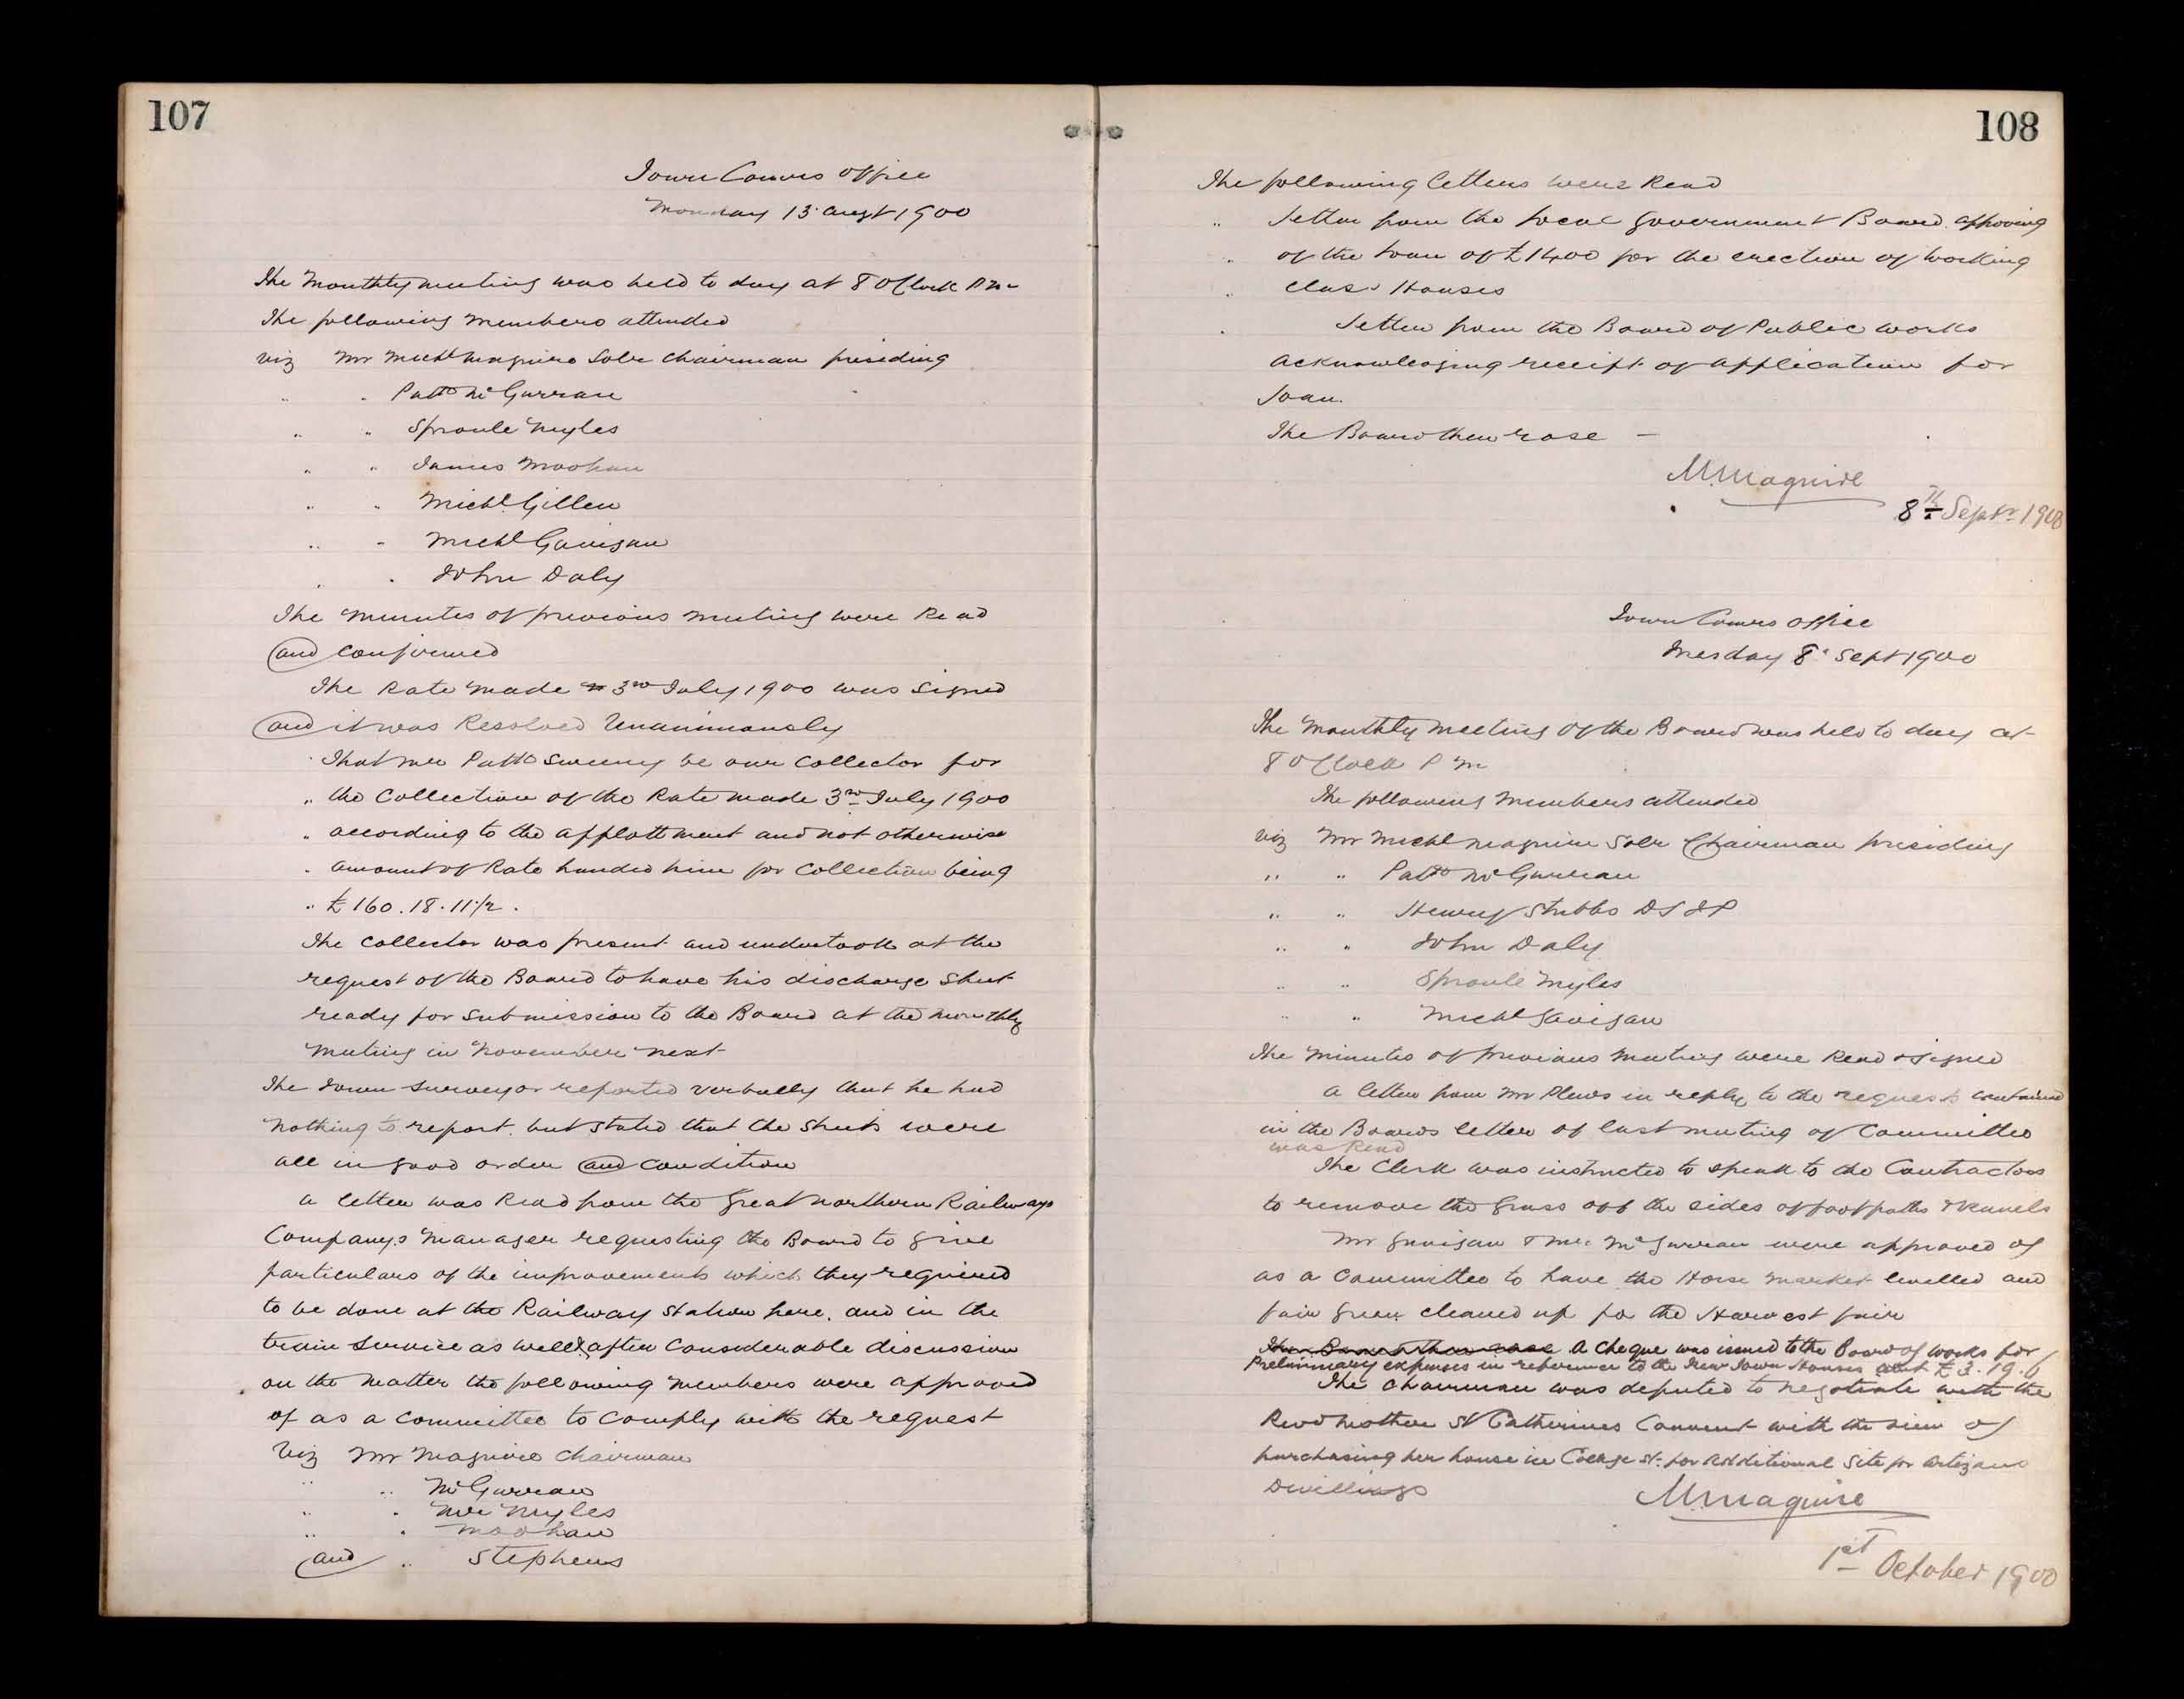 107
Town Comrs Office
Monday 13 Augst 1900
The Monthly meeting was held to day at 8 O Clock P.M.
The following members attended
viz Mr Michl Maguire Solr Chairman presiding
" " Patk McGurran
" " Sproule Myles
" " James Moohan
" " Michl Gillen
" " Michl Gavigan
" " John Daly
The minutes of previous meeting were Read
and confirmed
The Rate made 3rd July 1900 was signed
and it was Resolved Unanimously
That Mr Patk Sweeny be our Collector for
" the Collection of the Rate made 3rd July 1900
" according to the applottment and not otherwise
" amount of Rate handed him for Collection being
" £160.18.11½.
The Collector was present and undertook at the
request of the Board to have his discharge Sheet
ready for submission to the Board at the monthly
meeting in November next
The Town Surveyor reported verbally that he had
nothing to report but stated that the Streets were
all in good order and condition
a letter was Read from the Great Northern Railways
Companys Manager requesting the Board to give
particulars of the improvements which they required
to be done at the Railway Station here. and in the
train service as well & after considerable discussion
on the matter the following members were approved
of as a committee to comply with the request
viz Mr Maguire Chairman
" " McGurran
" " Mr Myles
" " Moohan
and " Stephens
108
The following letters were Read
" Letter from the Local Government Board approving
" of the loan of £1400 for the erection of Working
" Class Houses
" Letter from the Board of Public Works
acknowledging receipt of application for
Loan.
The Board then rose —
M. Maguire
8th Septr 1900
Town Comrs Office
Tuesday 8 Sept 1900
The Monthly Meeting of the Board was held to day at
8 O Clock P M
The following members attended
viz Mr Michl Maguire Solr Chairman presiding
" " Patk McGurran
" " Henry Stubbs DL JP
" " John Daly
" " Sproule Myles
" " Michl Gavigan
The Minutes of previous meeting were Read & signed
a letter from Mr Plews in reply to the requests contained
in the Boards letter of last meeting of Committee
was Read
The Clerk was instructed to speak to the Contractors
to remove the grass off the sides of footpaths & Kennels
Mr Gavigan & Mr McGurran were approved of
as a Committee to have the Horse Market levelled and
fair green cleaned up for the Harvest fair
The Board then rose A Cheque was issued to the Board of Works for
Preliminary expenses in reference to the New Town Houses £3.19.6
The Chairman was deputed to negotiate with the
Revd Mother St Catherines Convent with the view of
purchasing her house in College St. for Additional Site for Artizans
Dwellings
M. Maguire
1st October 1900